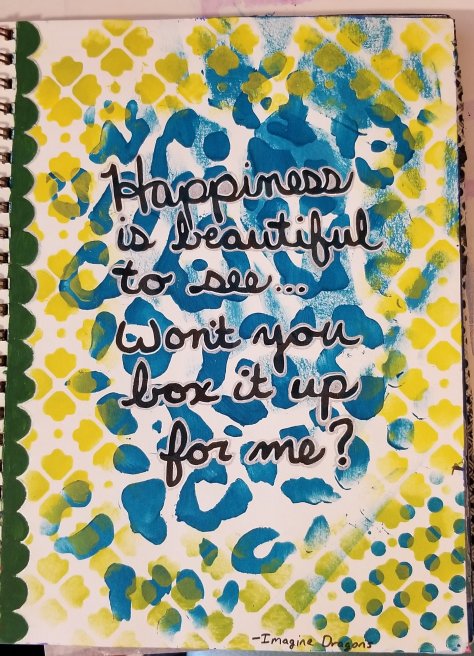 Happiness
is beautiful
to see...
Won't you
box it up
for me?
-Imagine Dragons